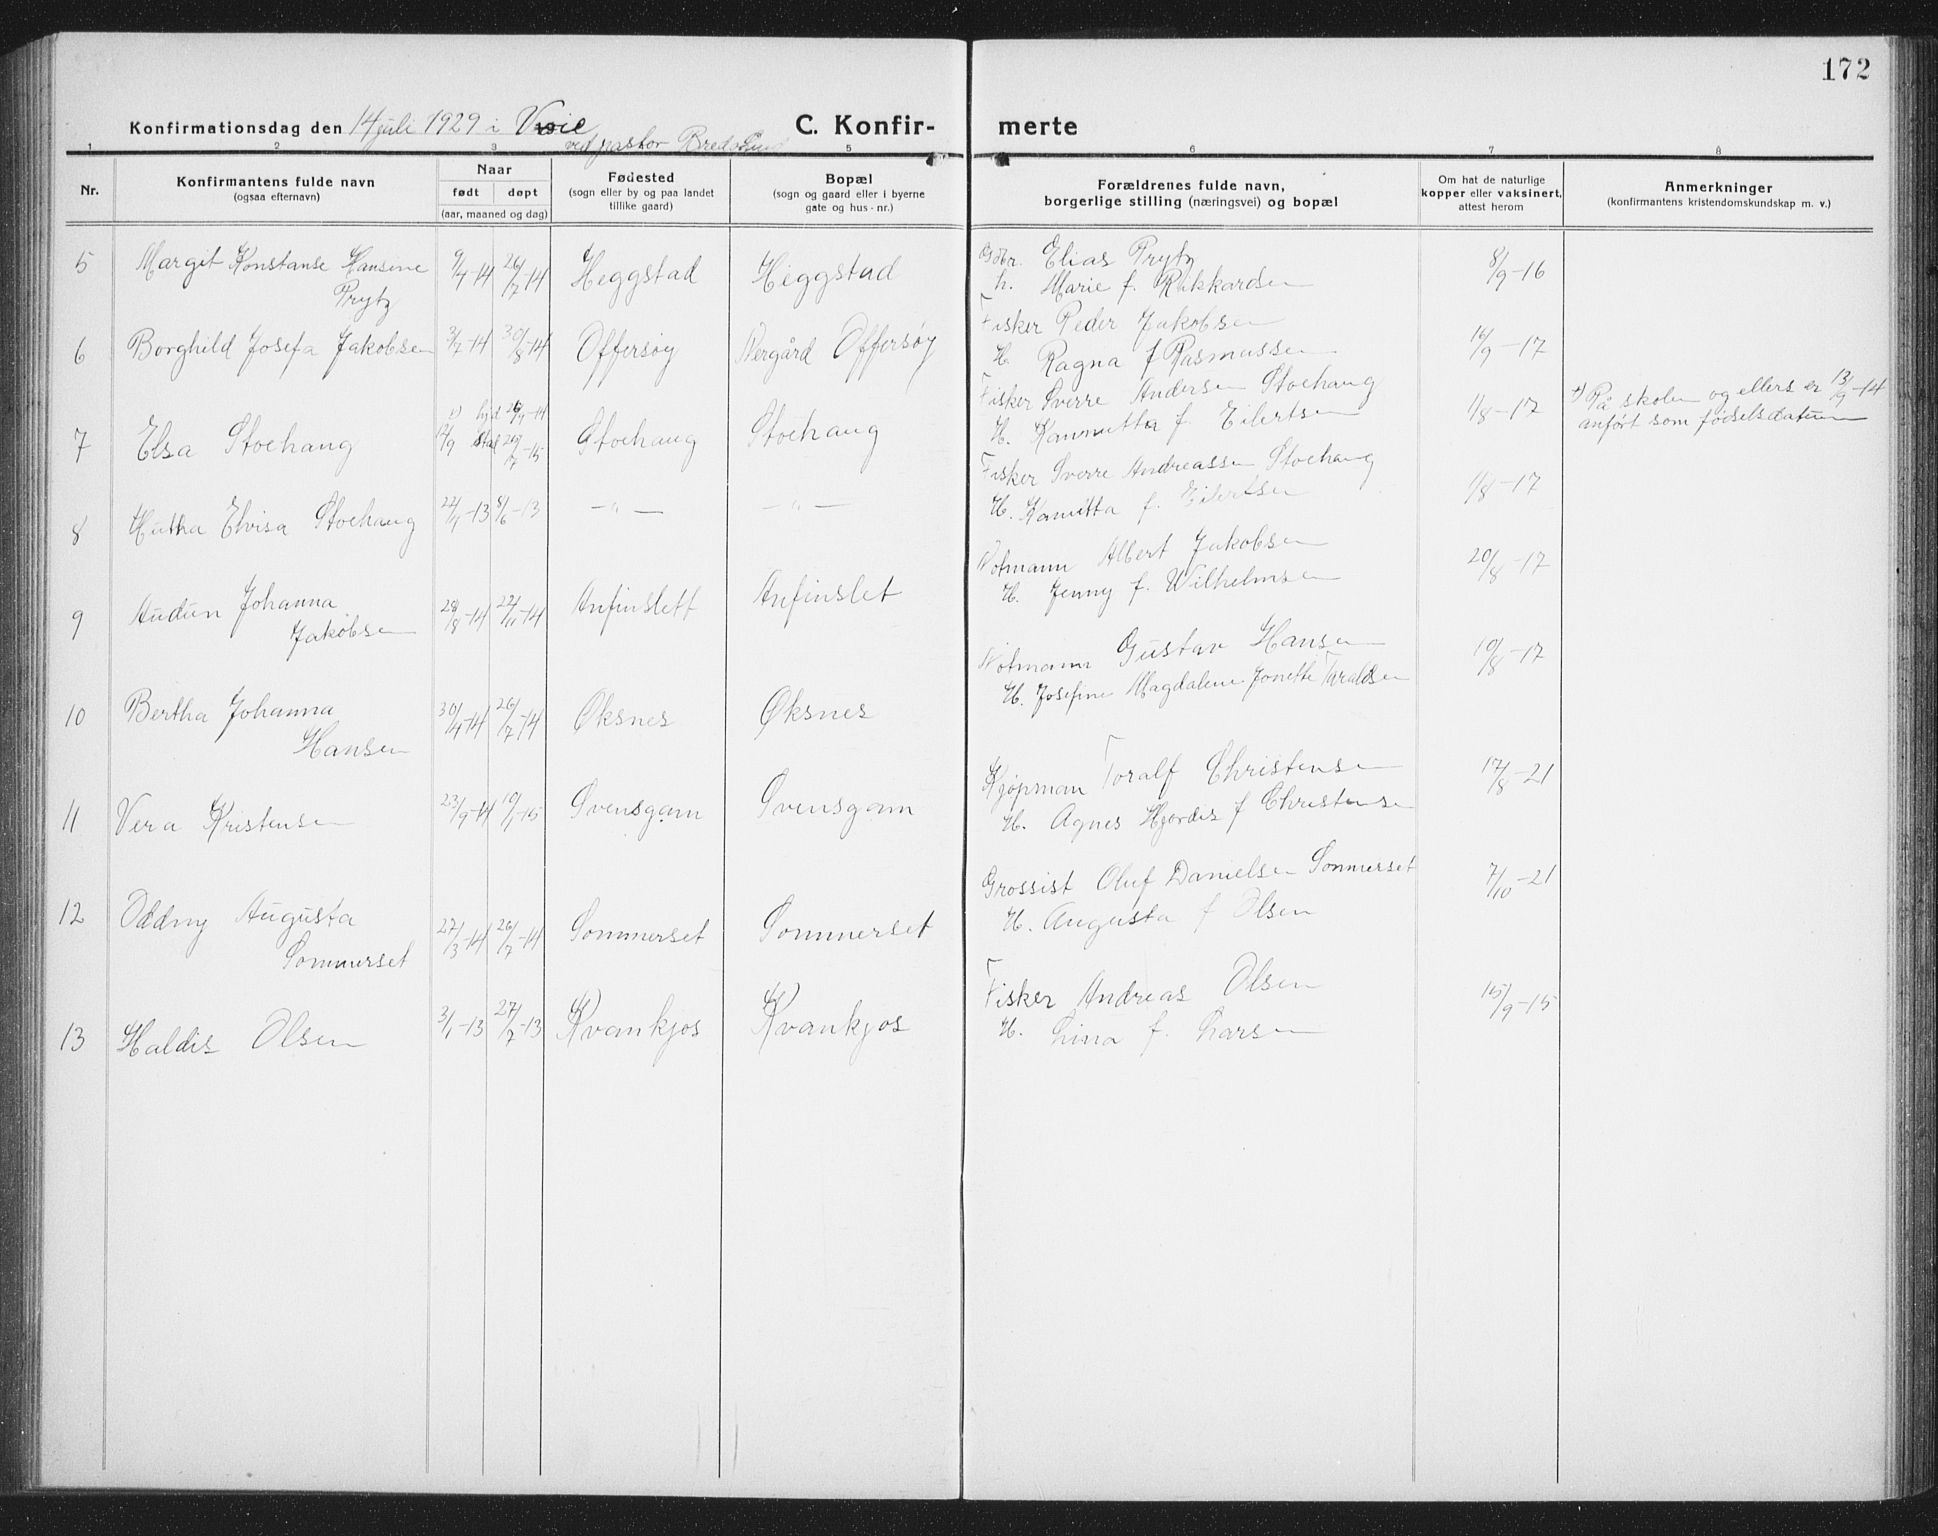 172
Konfirmationsdag den 14 juli 1929 i
C. Konfir- merte
ved pastor
1 2 3 5 6 7 8
Nr.
Konfirmantens fulde navn
(ogsaa efternavn)
Naar
født døpt
(aar, maaned og dag)
Fødested
(sogn eller by og paa landet
tillike gaard)
Bopæl
(sogn og gaard eller i byerne
gate og hus-nr.)
Forældrenes fulde navn,
borgerlige stilling (næringsvei) og bopæl
Om hat de naturlige
kopper eller vaksinert,
attest herom
Anmerkninger
(konfirmantens kristendomskundskap m. v.)
5 Margit Konstanse Hansine 9/4-14 26/7-14 Heggstad Heggstad Gbr. Elias Prytz 8/9-16
Prytz h. Marie f. Rikkardsen
6 Borghild Josefa Jakobsen 3/7-14 30/8-14 Offersøy Nergård Offersøy Fisker Peder Jakobsen 16/9-17
H. Ragna f Rasmussen
7 Elsa Stoehaug Stoehaug Stoehaug Fisker Sverre Andersen Stoehaug 1/8-17 På skolen og ellers er 13/9-14
H. f. Eilertsen anført som fødselsdatum
8 Elvisa Stoehaug 22/4-13 8/6-13 — " — — " — Fisker Sverre Andreassen Stoehaug 1/8-17
H. Kanutta f. Eilertsen
9 Audun Johanna 28/8-14 22/11-14 Anfinslett Anfinslet Notmann Albert Jakobsen 20/8-17
Jakobsen H. Jenny f. Wilhelmsen
10 Bertha Johanna 30/4-14 26/7-14 Øksnes Øksnes Notmann Gustav Hansen 10/8-17
Hansen H. Josefine Magdalene Jonette Taraldsen
11 Vera Kristensen 23/9-14 10/1-15 Svensgam Svensgam Kjøpman Toralf Christensen 17/8-21
H. Agnes Hjørdis f Christensen
12 Oddny Augusta 27/3-14 26/7-14 Sommerset Sommerset Grossist Oluf Danielsen Sommerset 7/10-21
Sommerset H. Augusta f Olsen
13 Haldis Olsen 3/1-13 27/7-13 Kvankjos Kvankjos Fisker Andreas Olsen 15/9-15
H. Lina f. Larsen